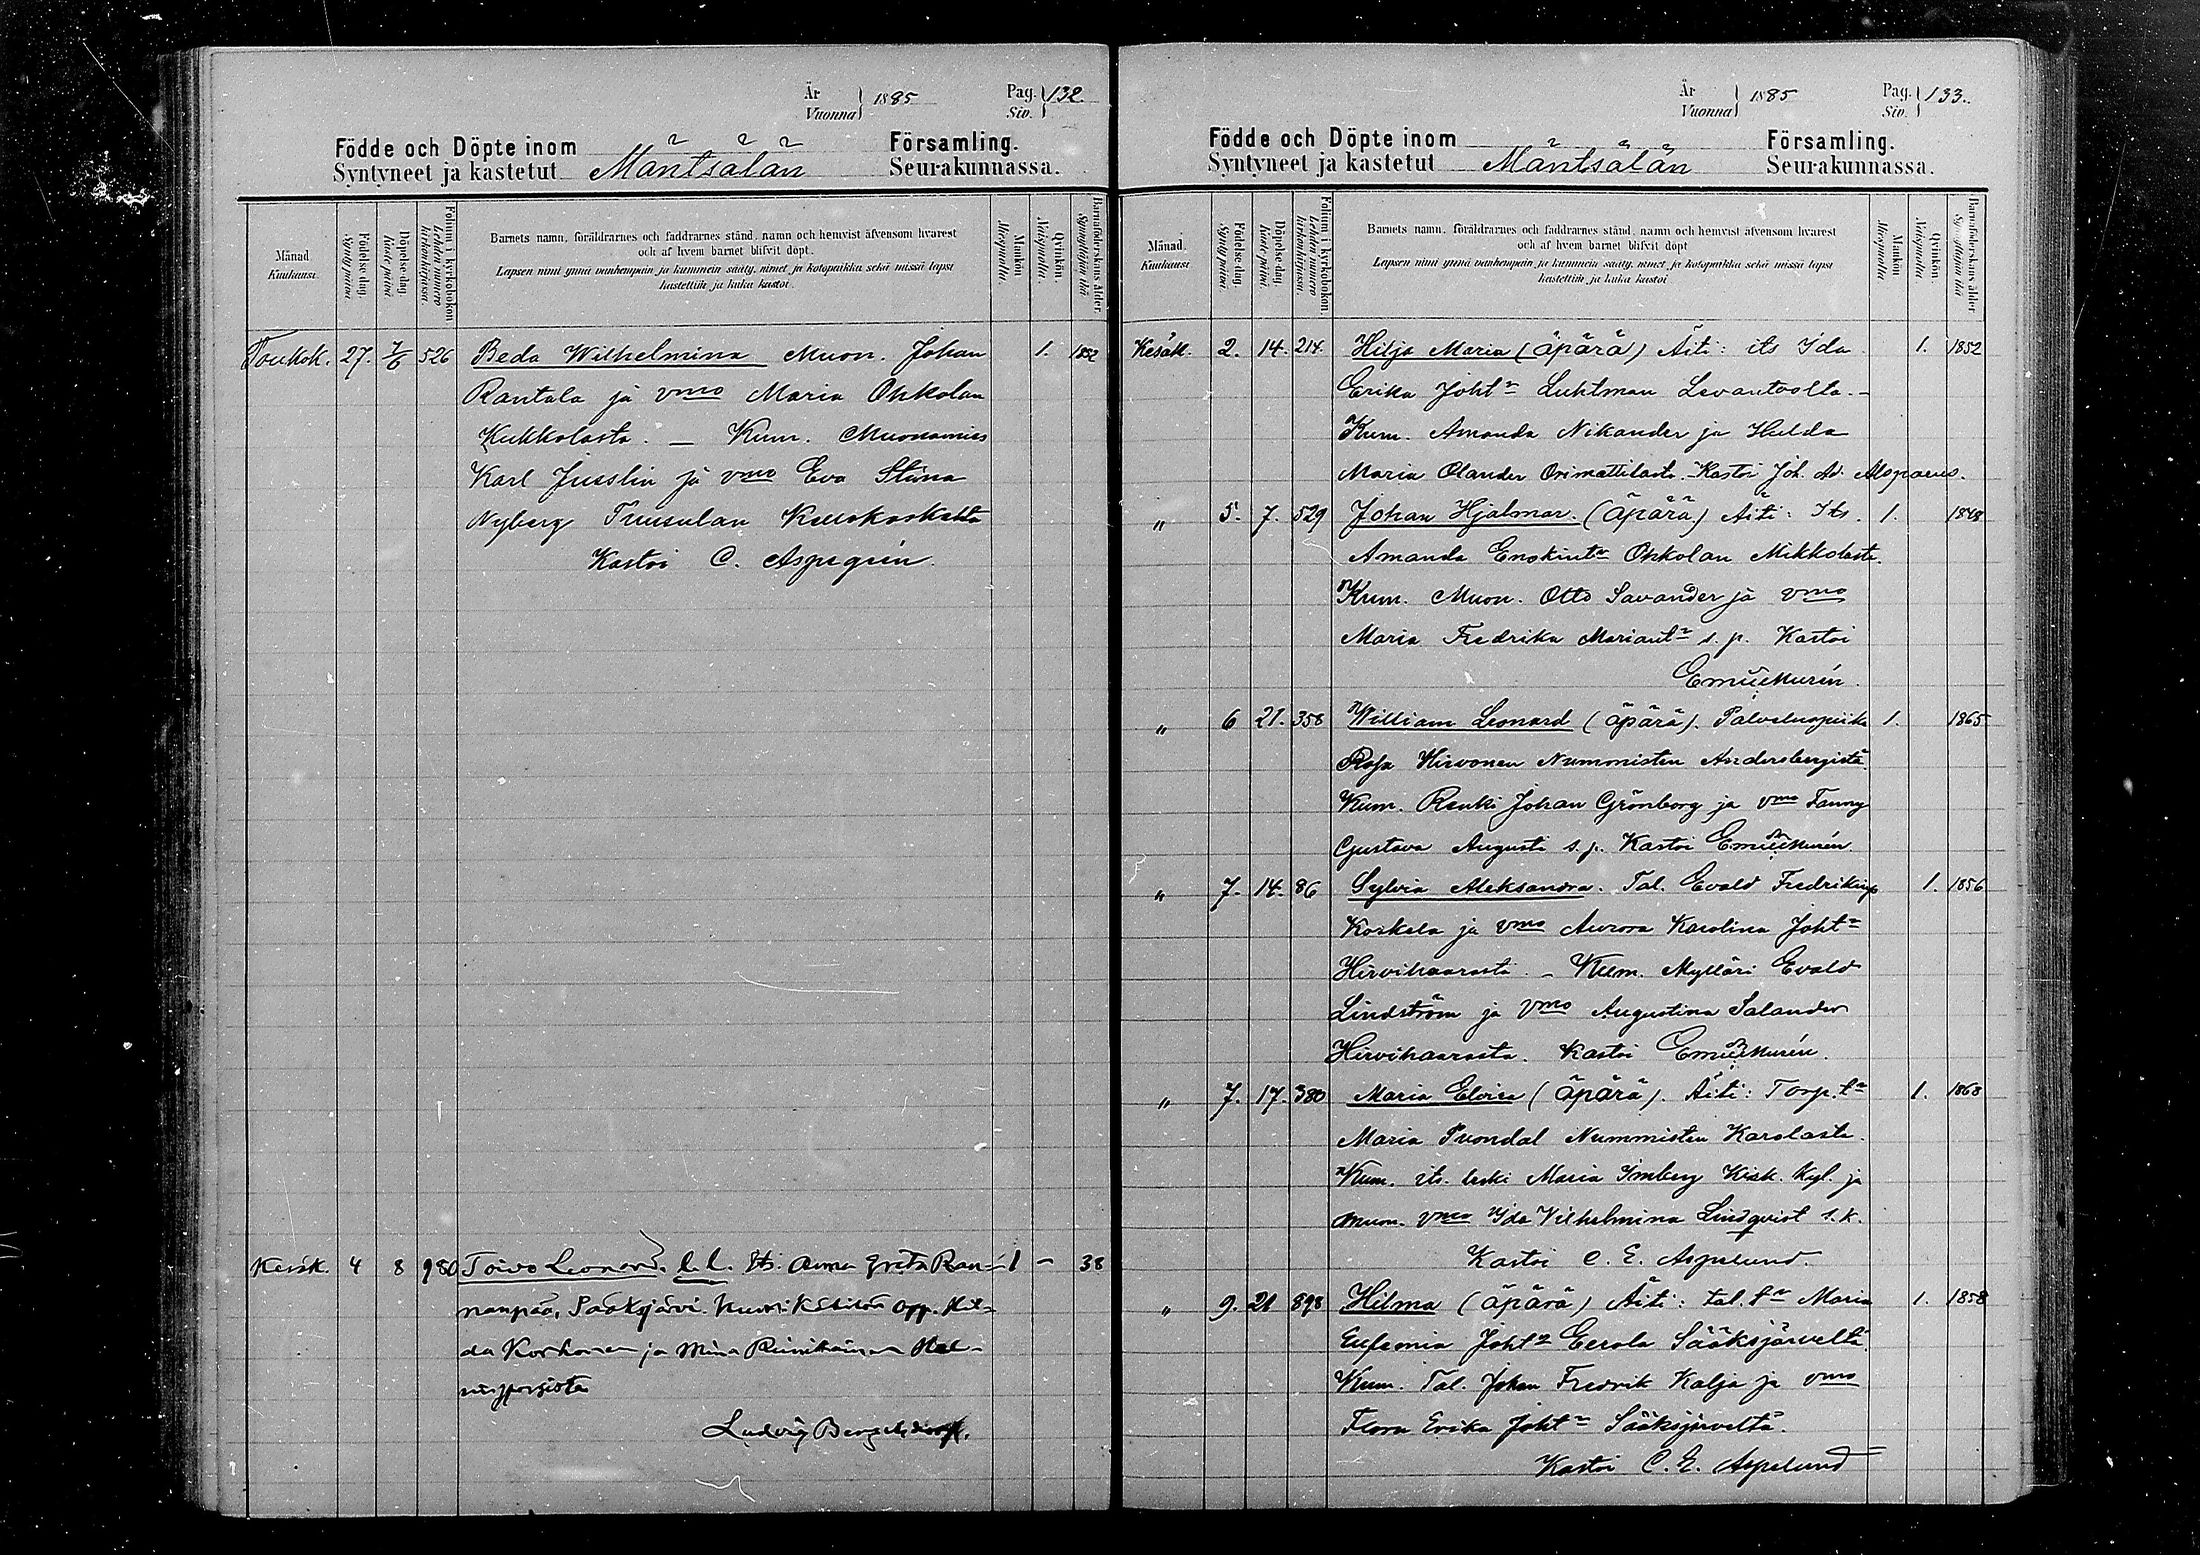 År
Vuonna } 1885
Pag.
Siv. } 132.
Födde och Döpte inom
Syntyneet ja kastetut Mäntsälän
Församling.
Seurakunnassa.
Månad
Kuukausi.
Födelse dag.
Synty päivä.
Döpelse dag.
Kaste päivä.
Folium i kyrkobokon.
Lehden numero kirkonkirjassa.
Barnets namn, föräldrarnes och faddrarnes stånd, namn och hemvist äfvensom hvarest
och af hvem barnet blifvit döpt.
Lapsen nimi ynnä vanhempain ja kummein sääty, nimet ja kotopaikka sekä missä lapsi
kastettiin ja kuka kastoi.
Mankön.
Miespuolia.
Qvinkön.
Naispuolia.
Barnaföderskans ålder
Synnyttäjän ikä
Toukok. 27. 7/6 526 Beda Wilhelmina Muon. Johan 1. 1852
Rantala ja vmo Maria Ohkolan
Kukkolasta. – Kum. Muonamies
Karl Jusslin ja vmo Eva Stina
Nyberg Tuusulan
Kastoi C. Aspegrén.
Kesäk. 4 8 980 Toivo Leonard. l. l. Its. Anna Greta Ran- 1 – 38
nanpää, Sääksjärvi. Opp. Hil-
da Korhonen ja Mina Reinikainen Hel-
singforsista
Ludvig Bergh
År
Vuonna } 1885
Pag.
Siv. } 133.
Födde och Döpte inom
Syntyneet ja kastetut Mäntsälän
Församling.
Seurakunnassa.
Månad.
Kuukausi
Födelse dag.
Synty päivä.
Döpelse dag.
Kaste päivä.
Folium i kyrkobokon.
Lehden numero kirkonkirjassa.
Barnets namn, föräldrarnes och faddrarnes stånd, namn och hemvist äfvensom hvarest
och af hvem barnet blifvit döpt
Lapsen nimi ynnä vanhempain ja kummein sääty, nimet ja kotopaikka sekä missä lapsi
kastettiin ja kuka kastoi
Mankön
Miespuolia.
Qvinkön.
Naispuolia.
Barnaföderskans ålder
Synnyttäjän ikä
Kesäk. 2. 14. 214. Hilja Maria (äpärä) Äiti: its Ida 1. 1852
Erika Joht:r Luhtman Levantoolta. –
Kum. Amanda Nikander ja Hulda
Maria Olander Orimattilasta. Kastoi Joh. Ad. Alopaeus.
" 5. 7. 529 Johan Hjalmar. (äpärä) Äiti: Its. 1. 1848
Amanda Enokint:r Ohkolan Mikkolasta.
Kum. Muon. Otto Savander ja vmo
Maria Fredrika Mariant:r s. p. Kastoi
Emil Murén.
" 6 21. 358 William Leonard (äpärä). Palveluspiika 1. 1865
Rosa Hirvonen Nummisten Andersbergistä.
Kum. Renki Johan Grönborg ja vmo Fanny
Gustava Augusti s. p. Kastoi Emil Murén.
" 7. 14. 86 Sylvia Aleksandra. Tal. Evald Fredrikinp 1. 1856
Koskela ja vmo Aurora Karolina Joht:r
Hirvihaarasta. – Kum. Mylläri Evald
Lindström ja vmo Augustina Salander
Hirvihaarasta. Kastoi Emil Murén.
" 7. 17. 380 Maria Elvira (äpärä). Äiti: Torp. t:r 1. 1868
Maria Nummisten Karolasta.
Kum. its. leski Maria Imberg Kirk. kyl. ja
muon. vmo Ida Vilhelmina Lindqvist s. k.
Kastoi C. E. Aspelund.
" 9. 21 898 Hilma (äpärä) Äiti: tal. t:r Maria 1. 1858
Eufemia Joht:r Eerola Sääksjärveltä.
Kum. Tal. Johan Fredrik Kalja ja vmo
Flora Erika Joht:r Sääksjärveltä.
Kastoi C. E. Aspelund